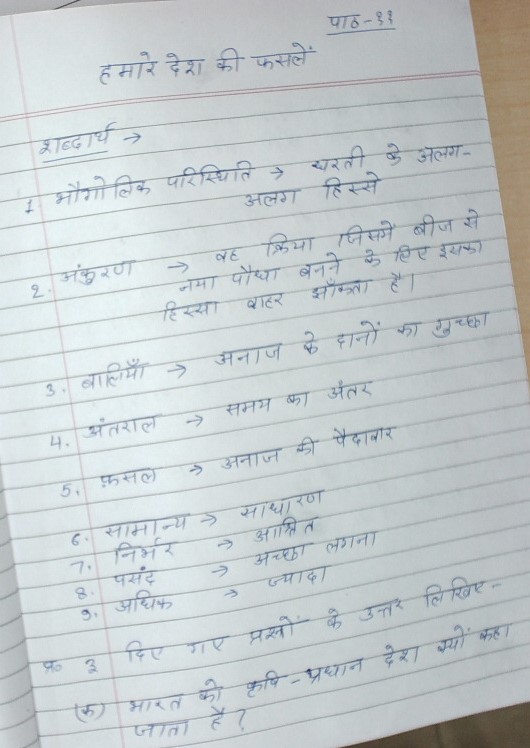 पाठ-११
हमारे देश की फसलें
शब्दार्थ →
1. भौगोलिक परिस्थिति → धरती के अलग-
अलग हिस्से
2. अंकुरण → वह क्रिया जिसमें बीज से
नया पौधा बनने के लिए इसका
हिस्सा बाहर झाँकता है।
3. बालियाँ → अनाज के दानों का गुच्छा
4. अंतराल → समय का अंतर
5. फ़सल → अनाज की पैदावार
6. सामान्य → साधारण
7. निर्भर → आश्रित
8. पसंद → अच्छा लगना
9. अधिक → ज्यादा
प्र० ३ दिए गए प्रश्नों के उत्तर लिखिए-
(क) भारत को कृषि-प्रधान देश क्यों कहा
जाता है?